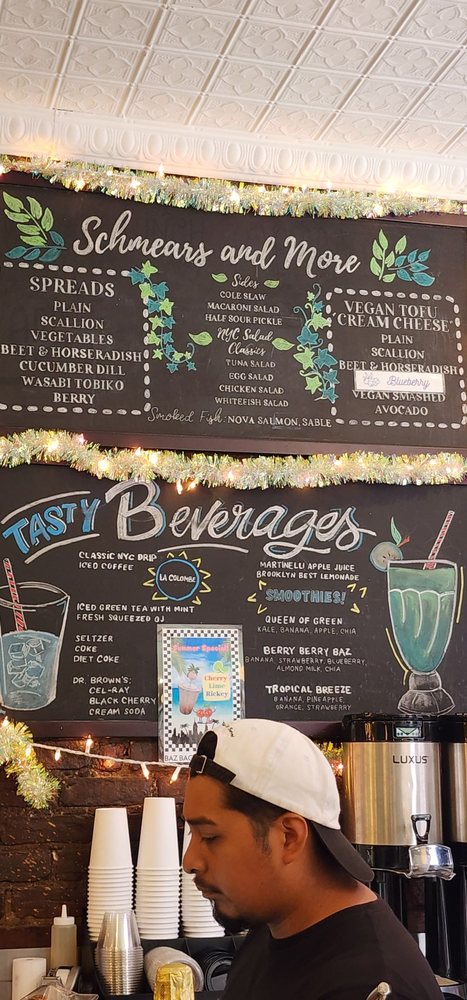 Schmears and More
SPREADS
PLAIN
SCALLION
VEGETABLES
BEET & HORSERADISH
CUCUMBER DILL
WASABI TOBIKO
BERRY
Sides
COLE SLAW
MACARONI SALAD
HALF SOUR PICKLE
NYC Salad
Classics
TUNA SALAD
EGG SALAD
CHICKEN SALAD
WHITEFISH SALAD
VEGAN TOFU
CREAM CHEESE
PLAIN
SCALLION
BEET & HORSERADISH
Blueberry
VEGAN SMASHED
AVOCADO
Smoked Fish: NOVA SALMON, SABLE
TASTY Beverages
CLASSIC NYC DRIP
ICED COFFEE
LA COLOMBE
ICED GREEN TEA WITH MINT
FRESH SQUEEZED OJ
SELTZER
COKE
DIET COKE
DR. BROWN'S:
CEL-RAY
BLACK CHERRY
CREAM SODA
MARTINELLI APPLE JUICE
BROOKLYN BEST LEMONADE
SMOOTHIES!
QUEEN OF GREEN
KALE, BANANA, APPLE, CHIA
BERRY BERRY BAZ
BANANA, STRAWBERRY, BLUEBERRY,
ALMOND MILK, CHIA
TROPICAL BREEZE
BANANA, PINEAPPLE,
ORANGE, STRAWBERRY
Summer Special!
Cherry
Lime
Rickey
BAZ BAG
LUXUS